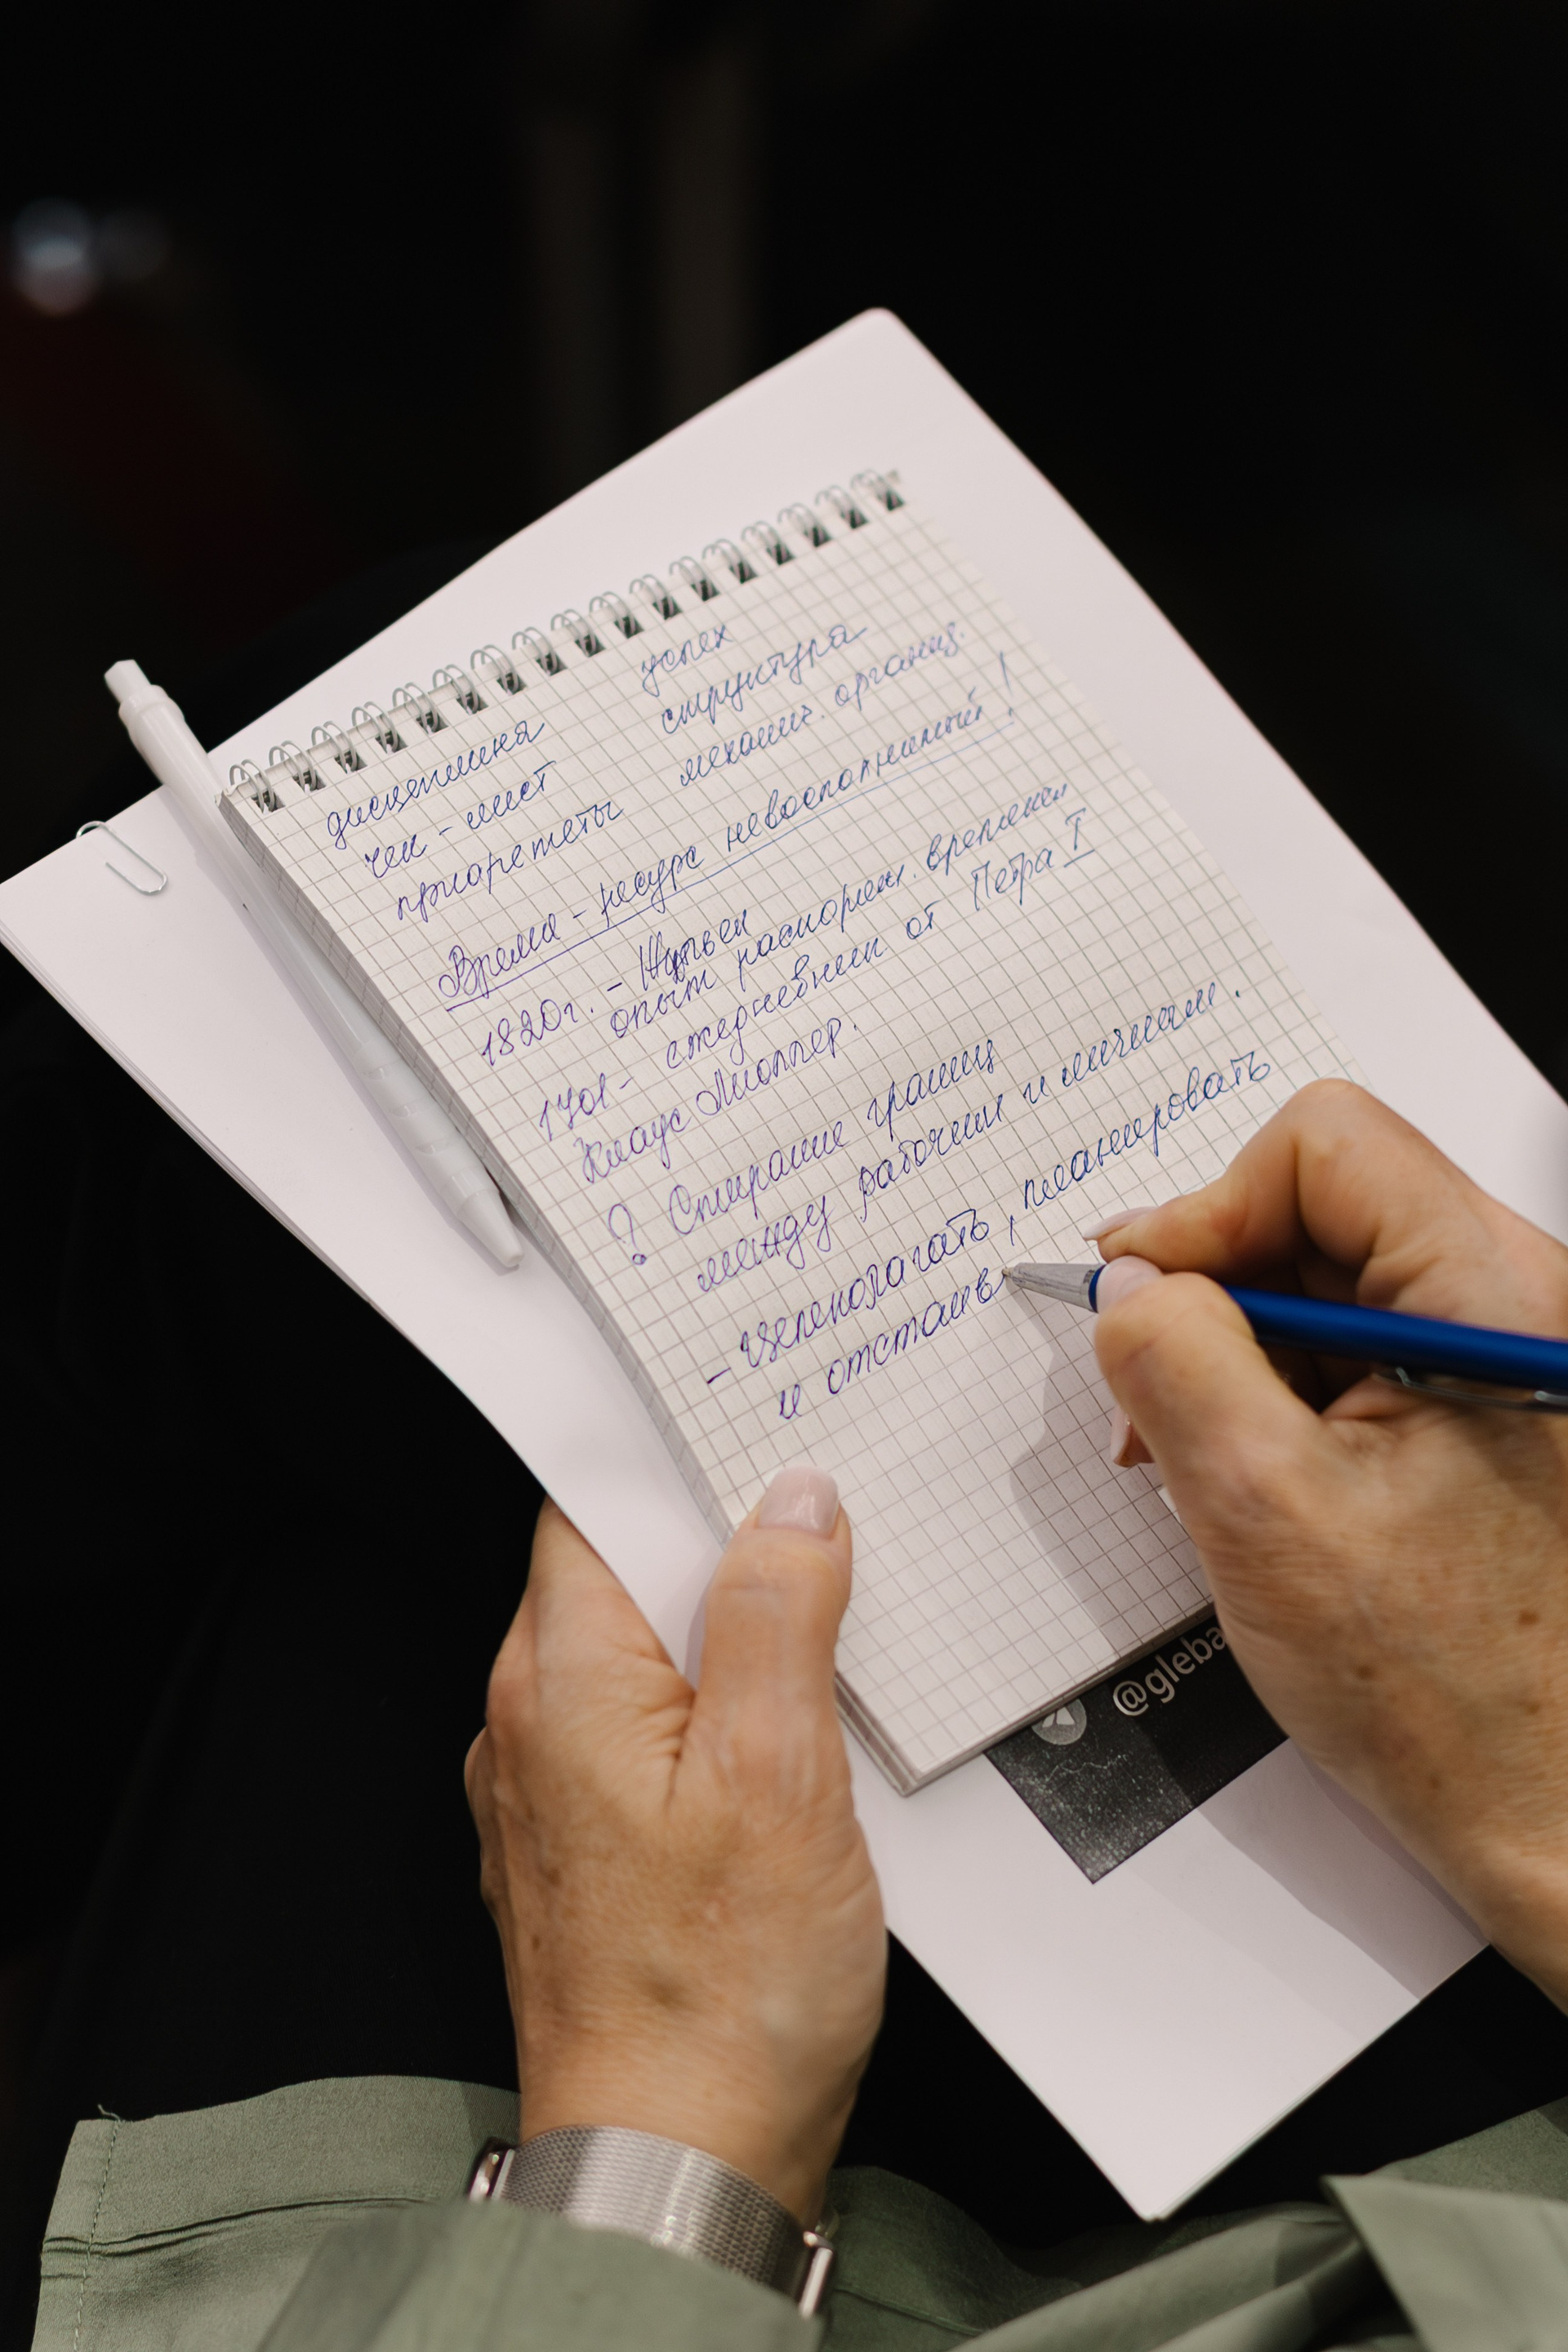 успех
дисциплина структура
чек-лист механиз. организ.
приоритеты
Время - ресурс невосполнимый!
1820г. - Жульен
опыт распоряж. временем
1701- ежедневник от Петра I
Клаус Мюллер.
? Стирание границ
между рабочим и личным.
- целеполагать, планировать
и отстаив
@gleba